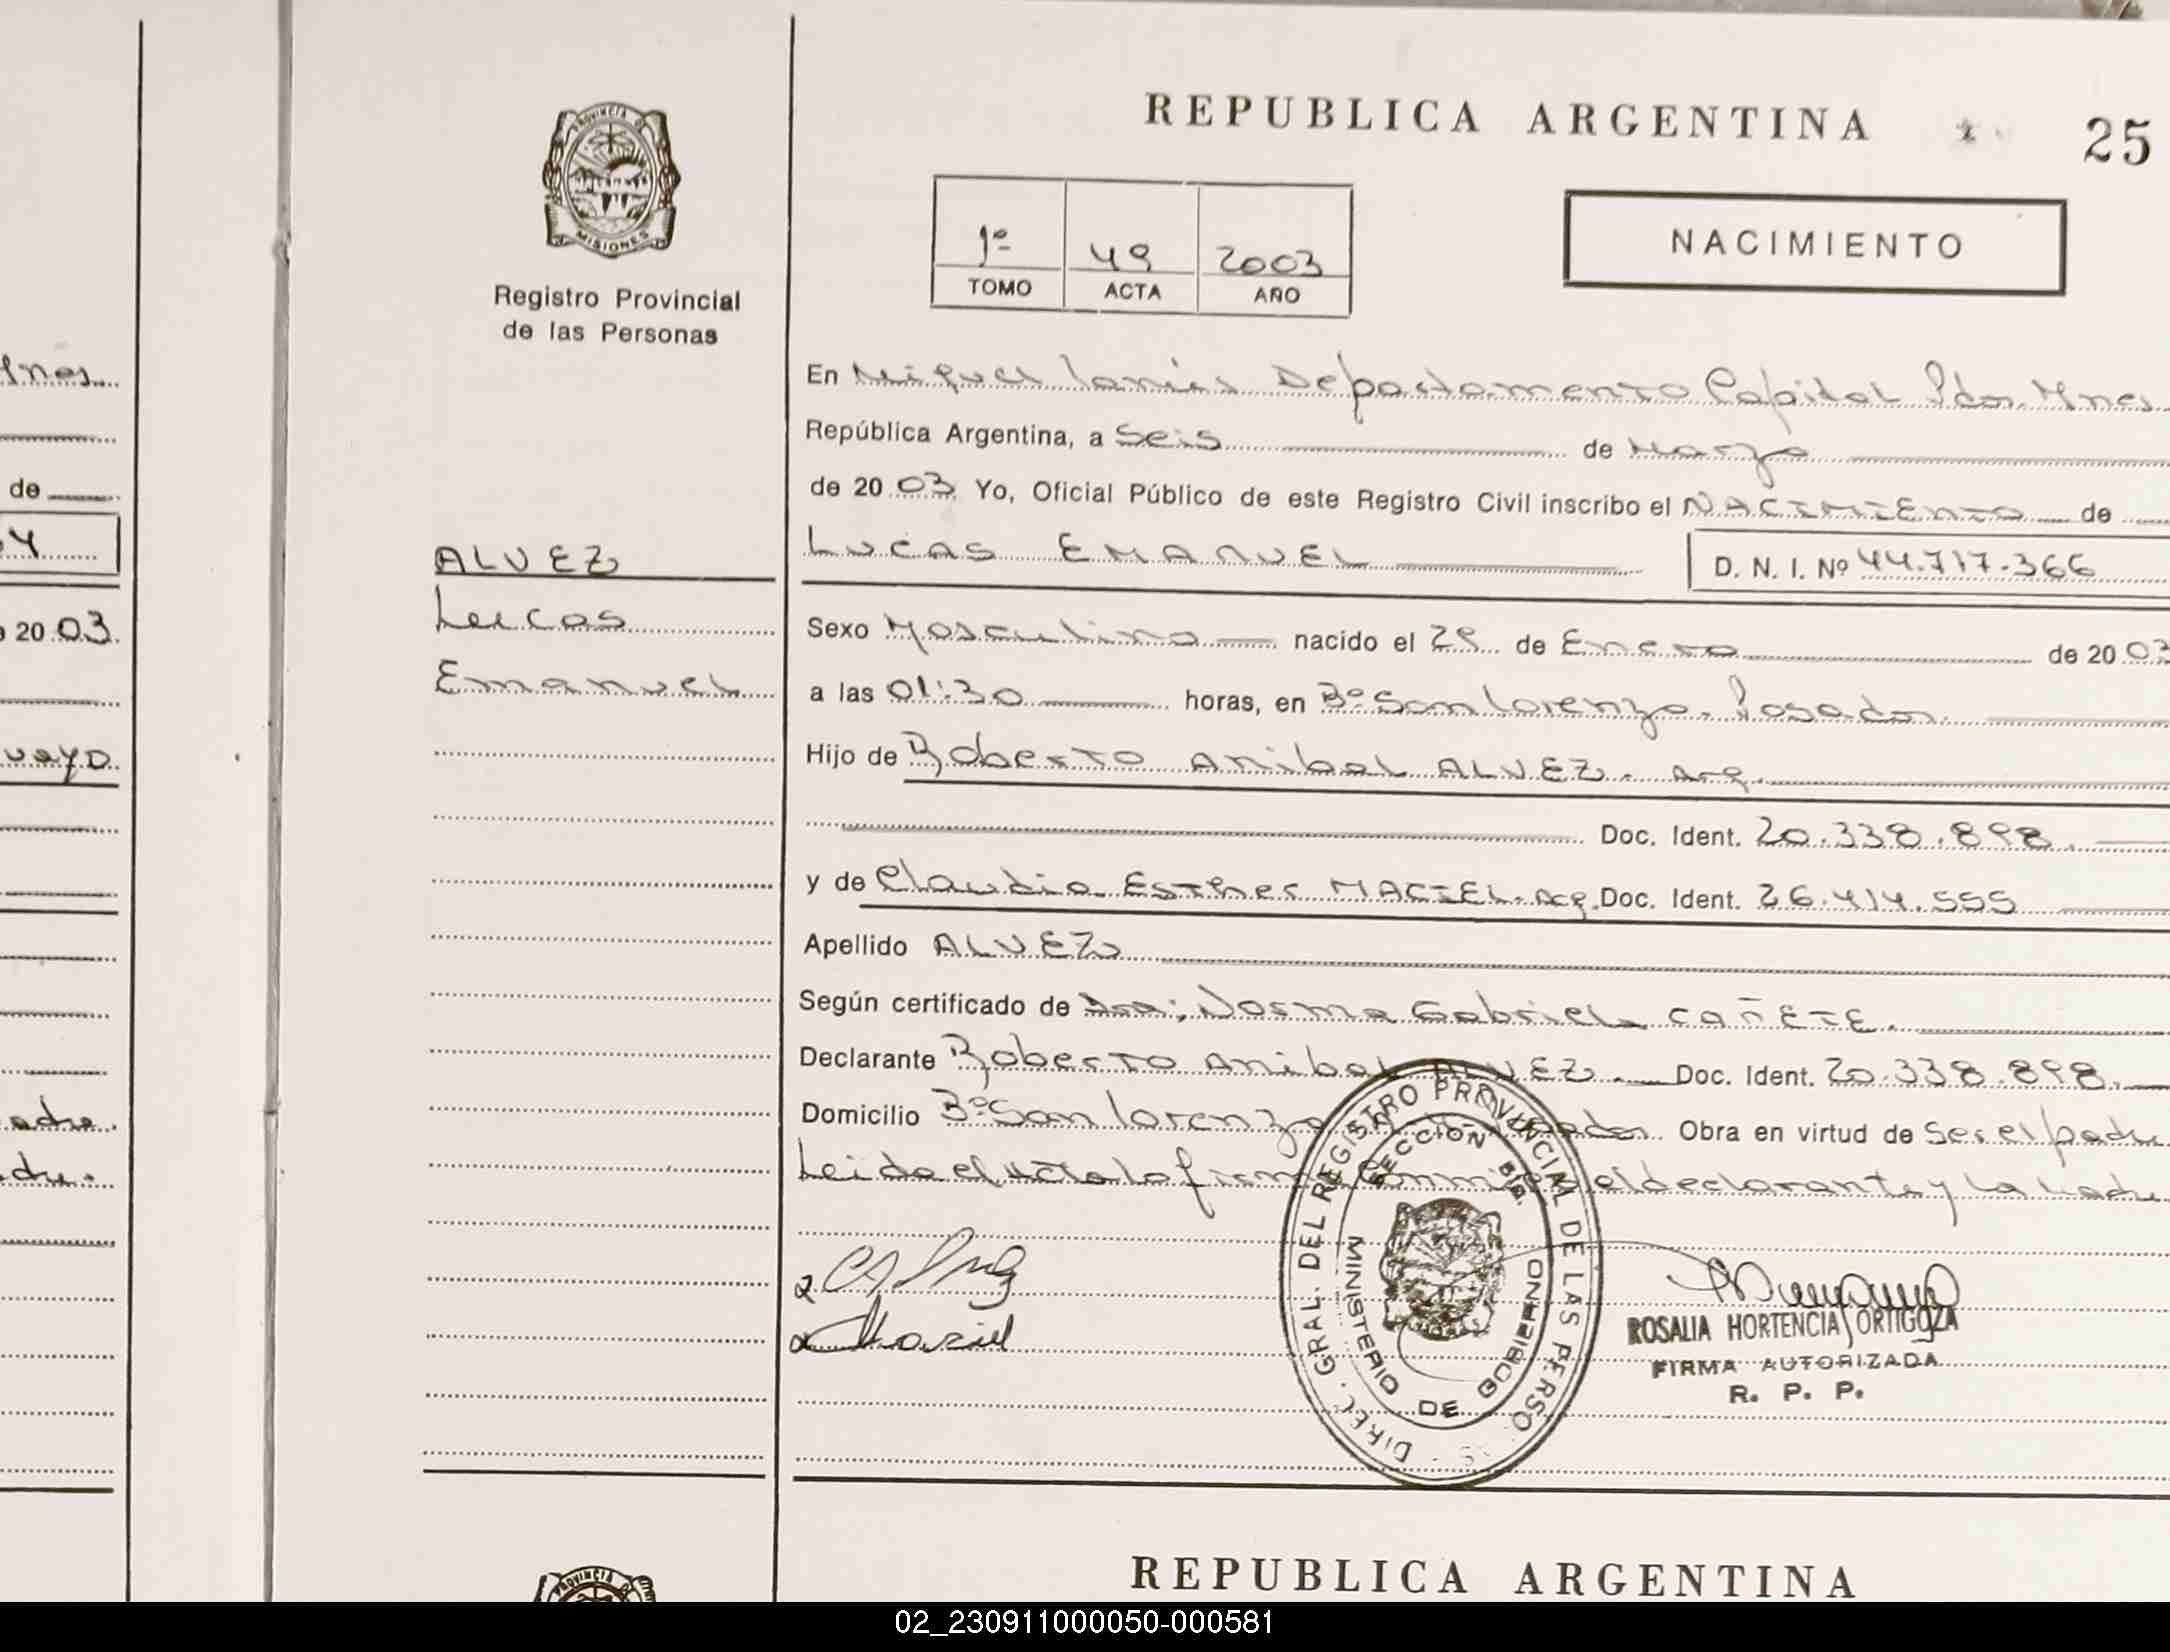 REPUBLICA ARGENTINA
25
PROVINCIA DE
MISIONES
Registro Provincial
de las Personas
1º 49 2003
TOMO ACTA AÑO
NACIMIENTO
En Miguel Lanús Departamento Capital Pdas. Mnes
República Argentina, a Seis de Marzo
de 2003 Yo, Oficial Público de este Registro Civil inscribo el NACIMIENTO de
LUCAS EMANUEL D. N. I. Nº 44.717.366
ALVEZ
Lucas
Emanuel
Sexo Masculino nacido el 29 de Enero de 2003
a las 01:30 horas, en Bº San Lorenzo. Posadas
Hijo de Roberto Anibal ALVEZ. Arg.
Doc. Ident. 20.338.898.
y de Claudia Esther MACIEL. Arg. Doc. Ident. 26.414.555
Apellido ALVEZ
Según certificado de Dra: Norma Gabriela CAÑETE.
Declarante Roberto Anibal ALVEZ. Doc. Ident. 20.338.898.
Domicilio Bº San Lorenzo Posadas Obra en virtud de Ser el padre
Leida el Acta la firma Conmigo el declarante y la Madre
Maciel
DIREC. GRAL. DEL REGISTRO PROVINCIAL DE LAS PERSO AS
MINISTERIO DE GOBIERNO
ROSALIA HORTENCIA ORTIGOZA
FIRMA AUTORIZADA
R. P. P.
Mnes.
de
4
20 03.
uayo.
adre.
REPUBLICA ARGENTINA
PROVINCIA D
02_230911000050-000581